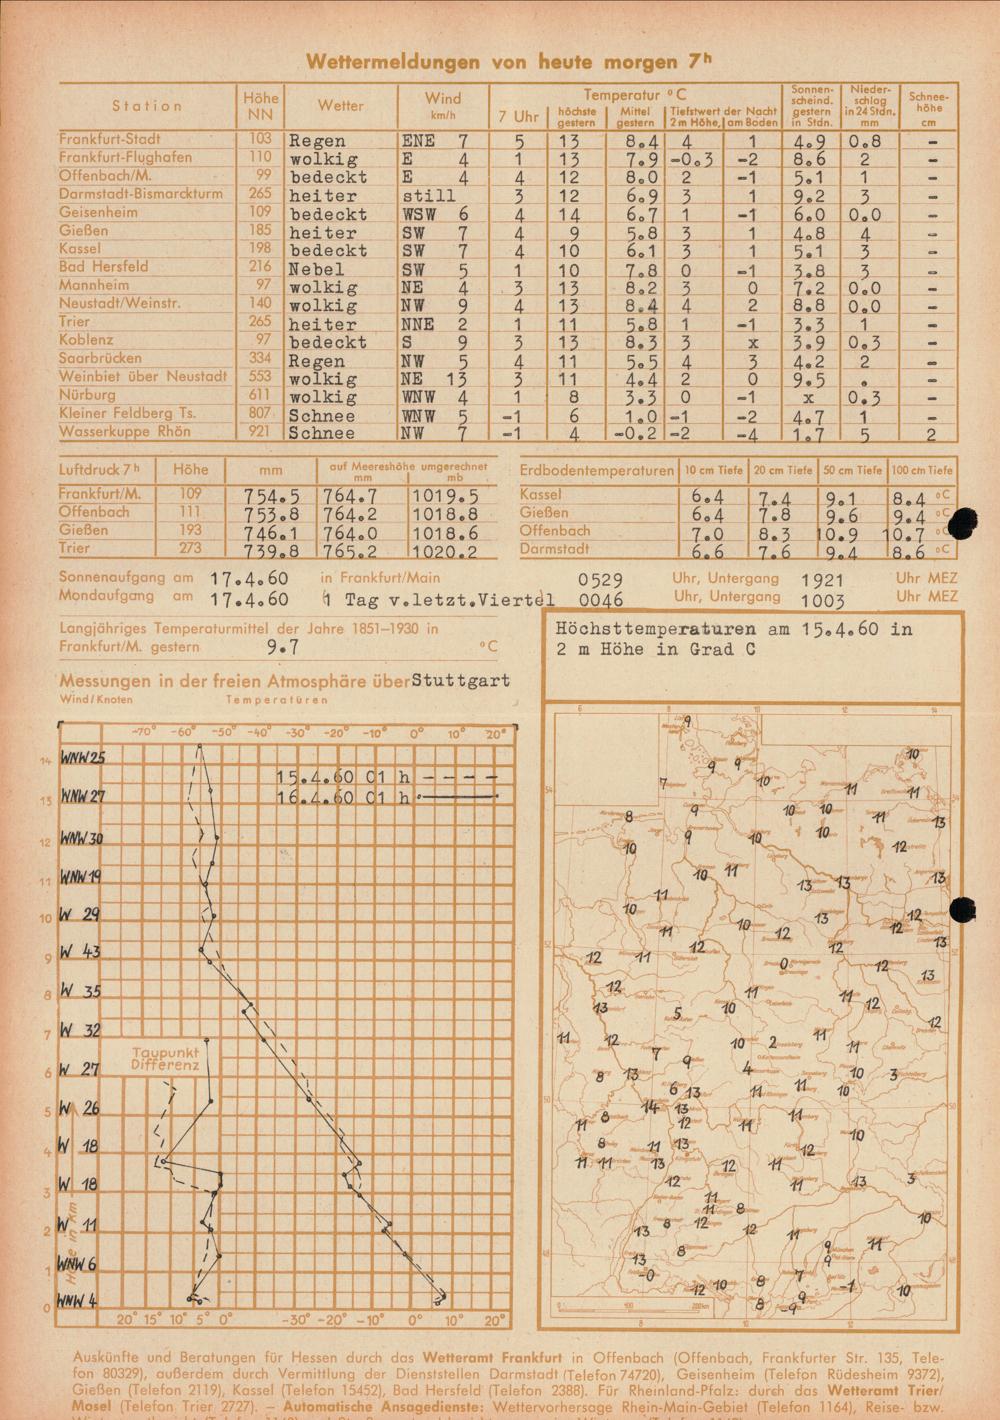 Wettermeldungen von heute morgen 7h
Station Höhe NN Wetter Wind km/h Temperatur °C Sonnenscheind. gestern in Stdn. Niederschlag in 24 Stdn. mm Schneehöhe cm
7 Uhr höchste gestern Mittel gestern Tiefstwert der Nacht 2 m Höhe, am Boden
Frankfurt-Stadt 103 Regen ENE 7 5 13 8.4 4 1 4.9 0.8 -
Frankfurt-Flughafen 110 wolkig E 4 1 13 7.9 -0.3 -2 8.6 2 -
Offenbach/M. 99 bedeckt E 4 4 12 8.0 2 -1 5.1 1 -
Darmstadt-Bismarckturm 265 heiter still 3 12 6.9 3 1 9.2 3 -
Geisenheim 109 bedeckt WSW 6 4 14 6.7 1 -1 6.0 0.0 -
Gießen 185 heiter SW 7 4 9 5.8 3 1 4.8 4 -
Kassel 198 bedeckt SW 7 4 10 6.1 3 1 5.1 3 -
Bad Hersfeld 216 Nebel SW 5 1 10 7.8 0 -1 3.8 3 -
Mannheim 97 wolkig NE 4 3 13 8.2 3 0 7.2 0.0 -
Neustadt/Weinstr. 140 wolkig NW 9 4 13 8.4 4 2 8.8 0.0 -
Trier 265 heiter NNE 2 1 11 5.8 1 -1 3.3 1 -
Koblenz 97 bedeckt S 9 3 13 8.3 3 x 3.9 0.3 -
Saarbrücken 334 Regen NW 5 4 11 5.5 4 3 4.2 2 -
Weinbiet über Neustadt 553 wolkig NE 13 3 11 4.4 2 0 9.5 . -
Nürburg 611 wolkig WNW 4 1 8 3.3 0 -1 x 0.3 -
Kleiner Feldberg Ts. 807 Schnee WNW 5 -1 6 1.0 -1 -2 4.7 1 -
Wasserkuppe Rhön 921 Schnee NW 7 -1 4 -0.2 -2 -4 1.7 5 2
Luftdruck 7h Höhe mm auf Meereshöhe umgerechnet mm mb
Frankfurt/M. 109 754.5 764.7 1019.5
Offenbach 111 753.8 764.2 1018.8
Gießen 193 746.1 764.0 1018.6
Trier 273 739.8 765.2 1020.2
Erdbodentemperaturen 10 cm Tiefe 20 cm Tiefe 50 cm Tiefe 100 cm Tiefe
Kassel 6.4 7.4 9.1 8.4 °C
Gießen 6.4 7.8 9.6 9.4 °C
Offenbach 7.0 8.3 10.9 10.7 °C
Darmstadt 6.6 7.6 9.4 8.6 °C
Sonnenaufgang am 17.4.60 in Frankfurt/Main 0529 Uhr, Untergang 1921 Uhr MEZ
Mondaufgang am 17.4.60 (1 Tag v.letzt.Viertel 0046 Uhr, Untergang 1003 Uhr MEZ
Langjähriges Temperaturmittel der Jahre 1851–1930 in
Frankfurt/M. gestern 9.7 °C
Messungen in der freien Atmosphäre über Stuttgart
Wind/Knoten Temperaturen
-70° -60° -50° -40° -30° -20° -10° 0° 10° 20°
15.4.60 01 h - - - -
16.4.60 01 h
14 WNW 25
13 WNW 27
12 WNW 30
11 WNW 19
10 W 29
9 W 43
8 W 35
7 W 32
Taupunkt Differenz
6 W 27
5 W 26
4 W 18
3 W 18
2 W 11
1 WNW 6
0 WNW 4
Höhe in Km
20° 15° 10° 5° 0° -30° -20° -10° 0° 10° 20°
Höchsttemperaturen am 15.4.60 in
2 m Höhe in Grad C
6 8 10 12 14
9
9 9 10
7 10 11 11
8 9 10 10 11 13
10 9 10 10 12
10 11 13 13 13
10 11 13 12
11 10 12 12 12 13
12 11 12 0 12 13
12 11 11 12
13 5 10 12
11 12 7 9 10 2 11 11
8 13 4 10 3
6 13 11 11 10
14 13
11 8 12 11 11 10
8 11 13 12
11 11 13 12 11
12 11 13 3
11 11 8
13 8 12 12 11 10
8 9 11
13 9
-0 12 10 8 7 -1 10
8 -9
0 100 200km
Auskünfte und Beratungen für Hessen durch das Wetteramt Frankfurt in Offenbach (Offenbach, Frankfurter Str. 135, Tele-
fon 80329), außerdem durch Vermittlung der Dienststellen Darmstadt (Telefon 74720), Geisenheim (Telefon Rüdesheim 9372),
Gießen (Telefon 2119), Kassel (Telefon 15452), Bad Hersfeld (Telefon 2388). Für Rheinland-Pfalz: durch das Wetteramt Trier/
Mosel (Telefon Trier 2727). – Automatische Ansagedienste: Wettervorhersage Rhein-Main-Gebiet (Telefon 1164), Reise- bzw.